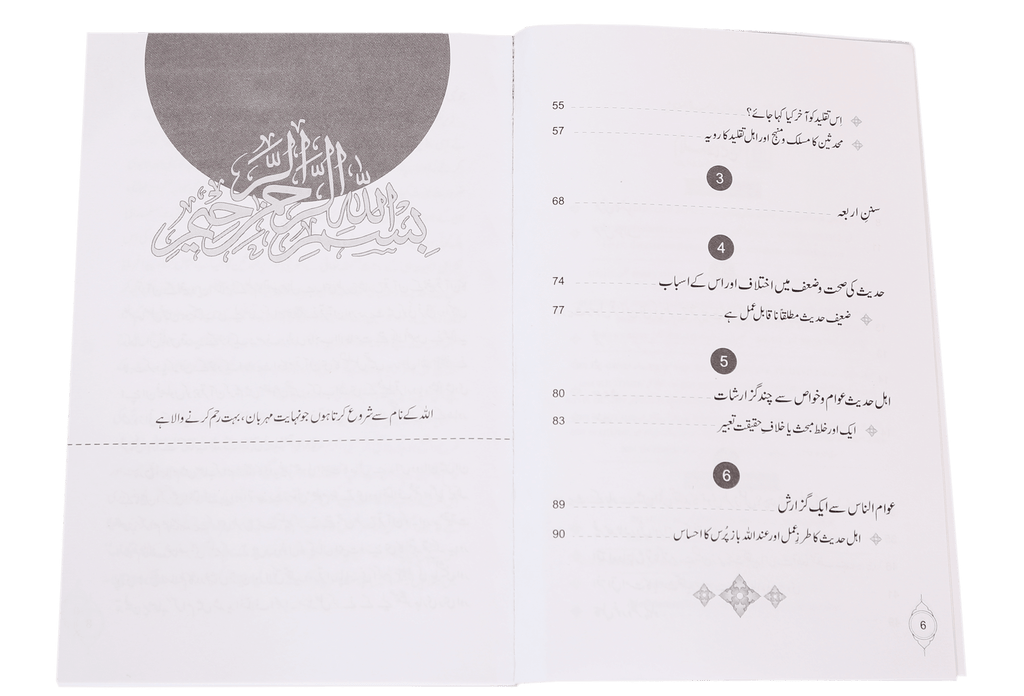 اس تقلید کو آخر کیا کہا جائے؟ 55
محدثین کا مسلک و منہج اور اہل تقلید کا رویہ 57
3
سنن اربعہ 68
4
حدیث کی صحت وضعف میں اختلاف اور اس کے اسباب 74
ضعیف حدیث مطلقاً نا قابل عمل ہے 77
5
اہل حدیث عوام و خواص سے چند گزارشات 80
ایک اور خلط مبحث یا خلافِ حقیقت تعبیر 83
6
عوام الناس سے ایک گزارش 89
اہل حدیث کا طرزِ عمل اور عند اللہ باز پُرس کا احساس 90
6
بسم الله الرحمن الرحيم
اللہ کے نام سے شروع کرتا ہوں جو نہایت مہربان، بہت رحم کرنے والا ہے